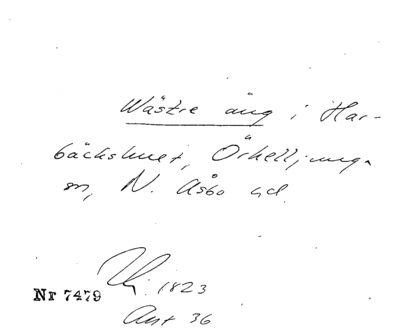 Wästre äng i Har-
bäckshult, Örkelljunga
sn, N. Åsbo hd.
1823
Nr 7479
Akt 36